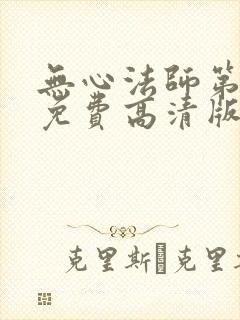 無心法師第
免費高清版
克里斯·克里